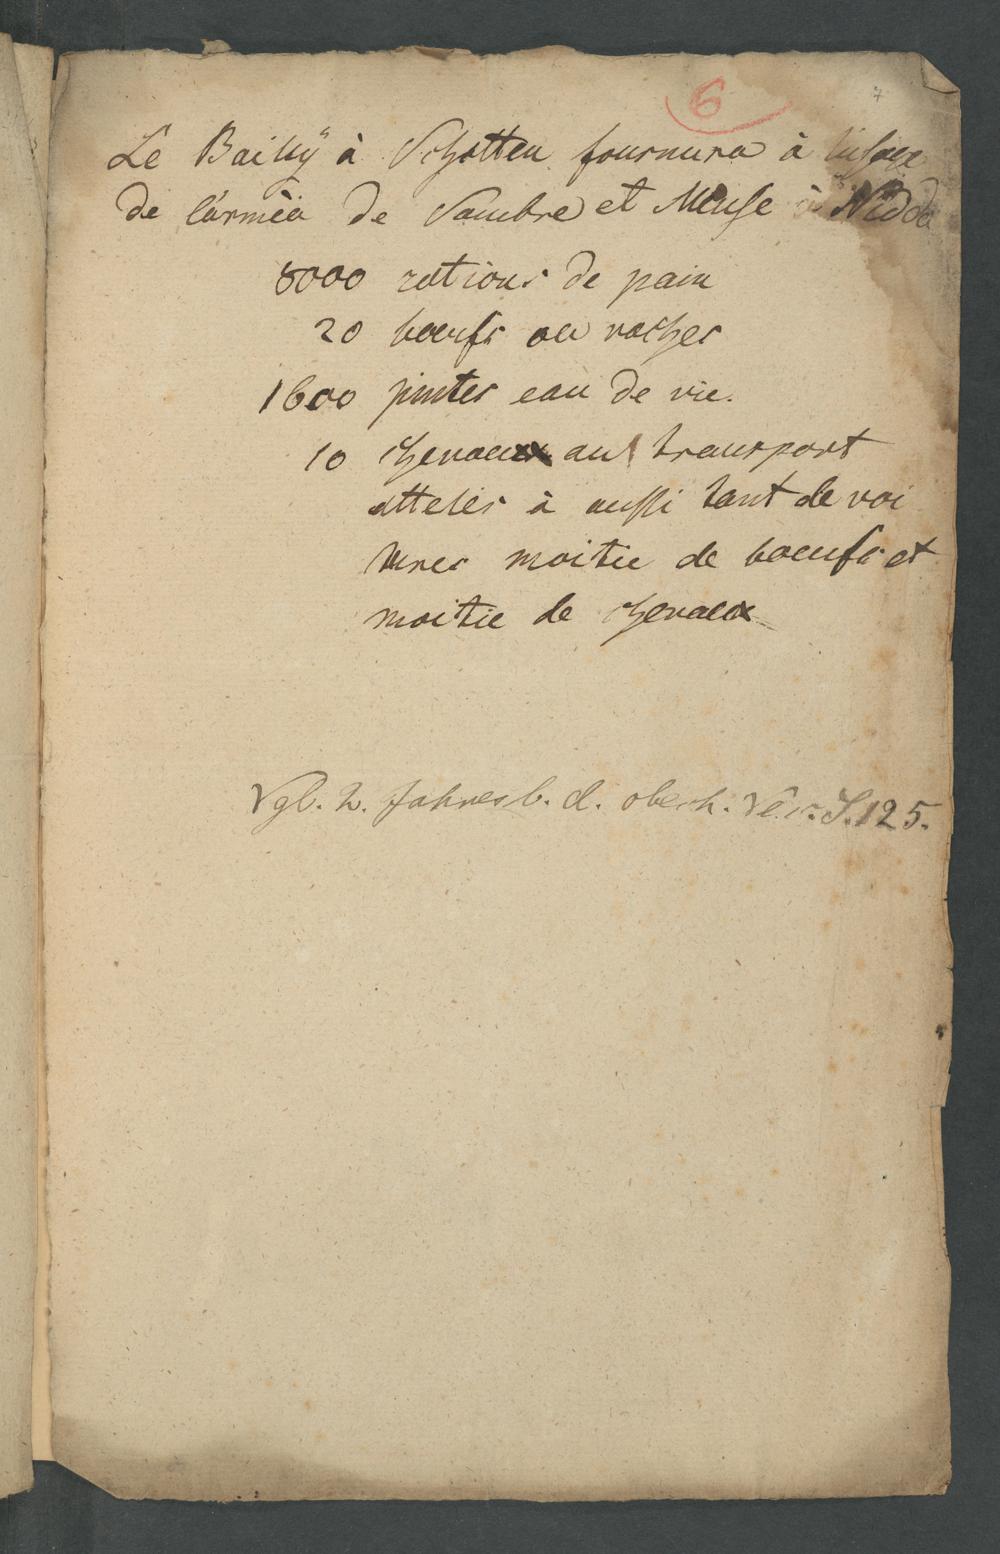 6
7
Le Baillÿ à Schotten fournira à l'usage
de l'armèe de Sambre et Meuse à Nidda
8000 rations de pain
20 boeufs ou vaches
1600 pintes eau de vie.
10 chevaux au transport
attelés à aussi tant de voi
tures moitie de boeufs et
moitie de chevaux
Vgl. 2. Jahresb. d. oberh. Ver. S. 125.